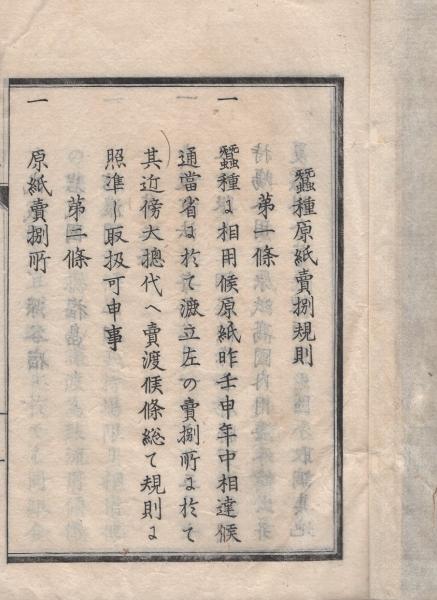 蠶種原紙賣捌規則
第一條
一 蠶種に相用候原紙昨壬申年中相達候
通當省に於て漉立左の賣捌所に於て
其近傍大總代へ賣渡候條総て規則に
照準し取扱可申事
第二條
一 原紙賣捌所